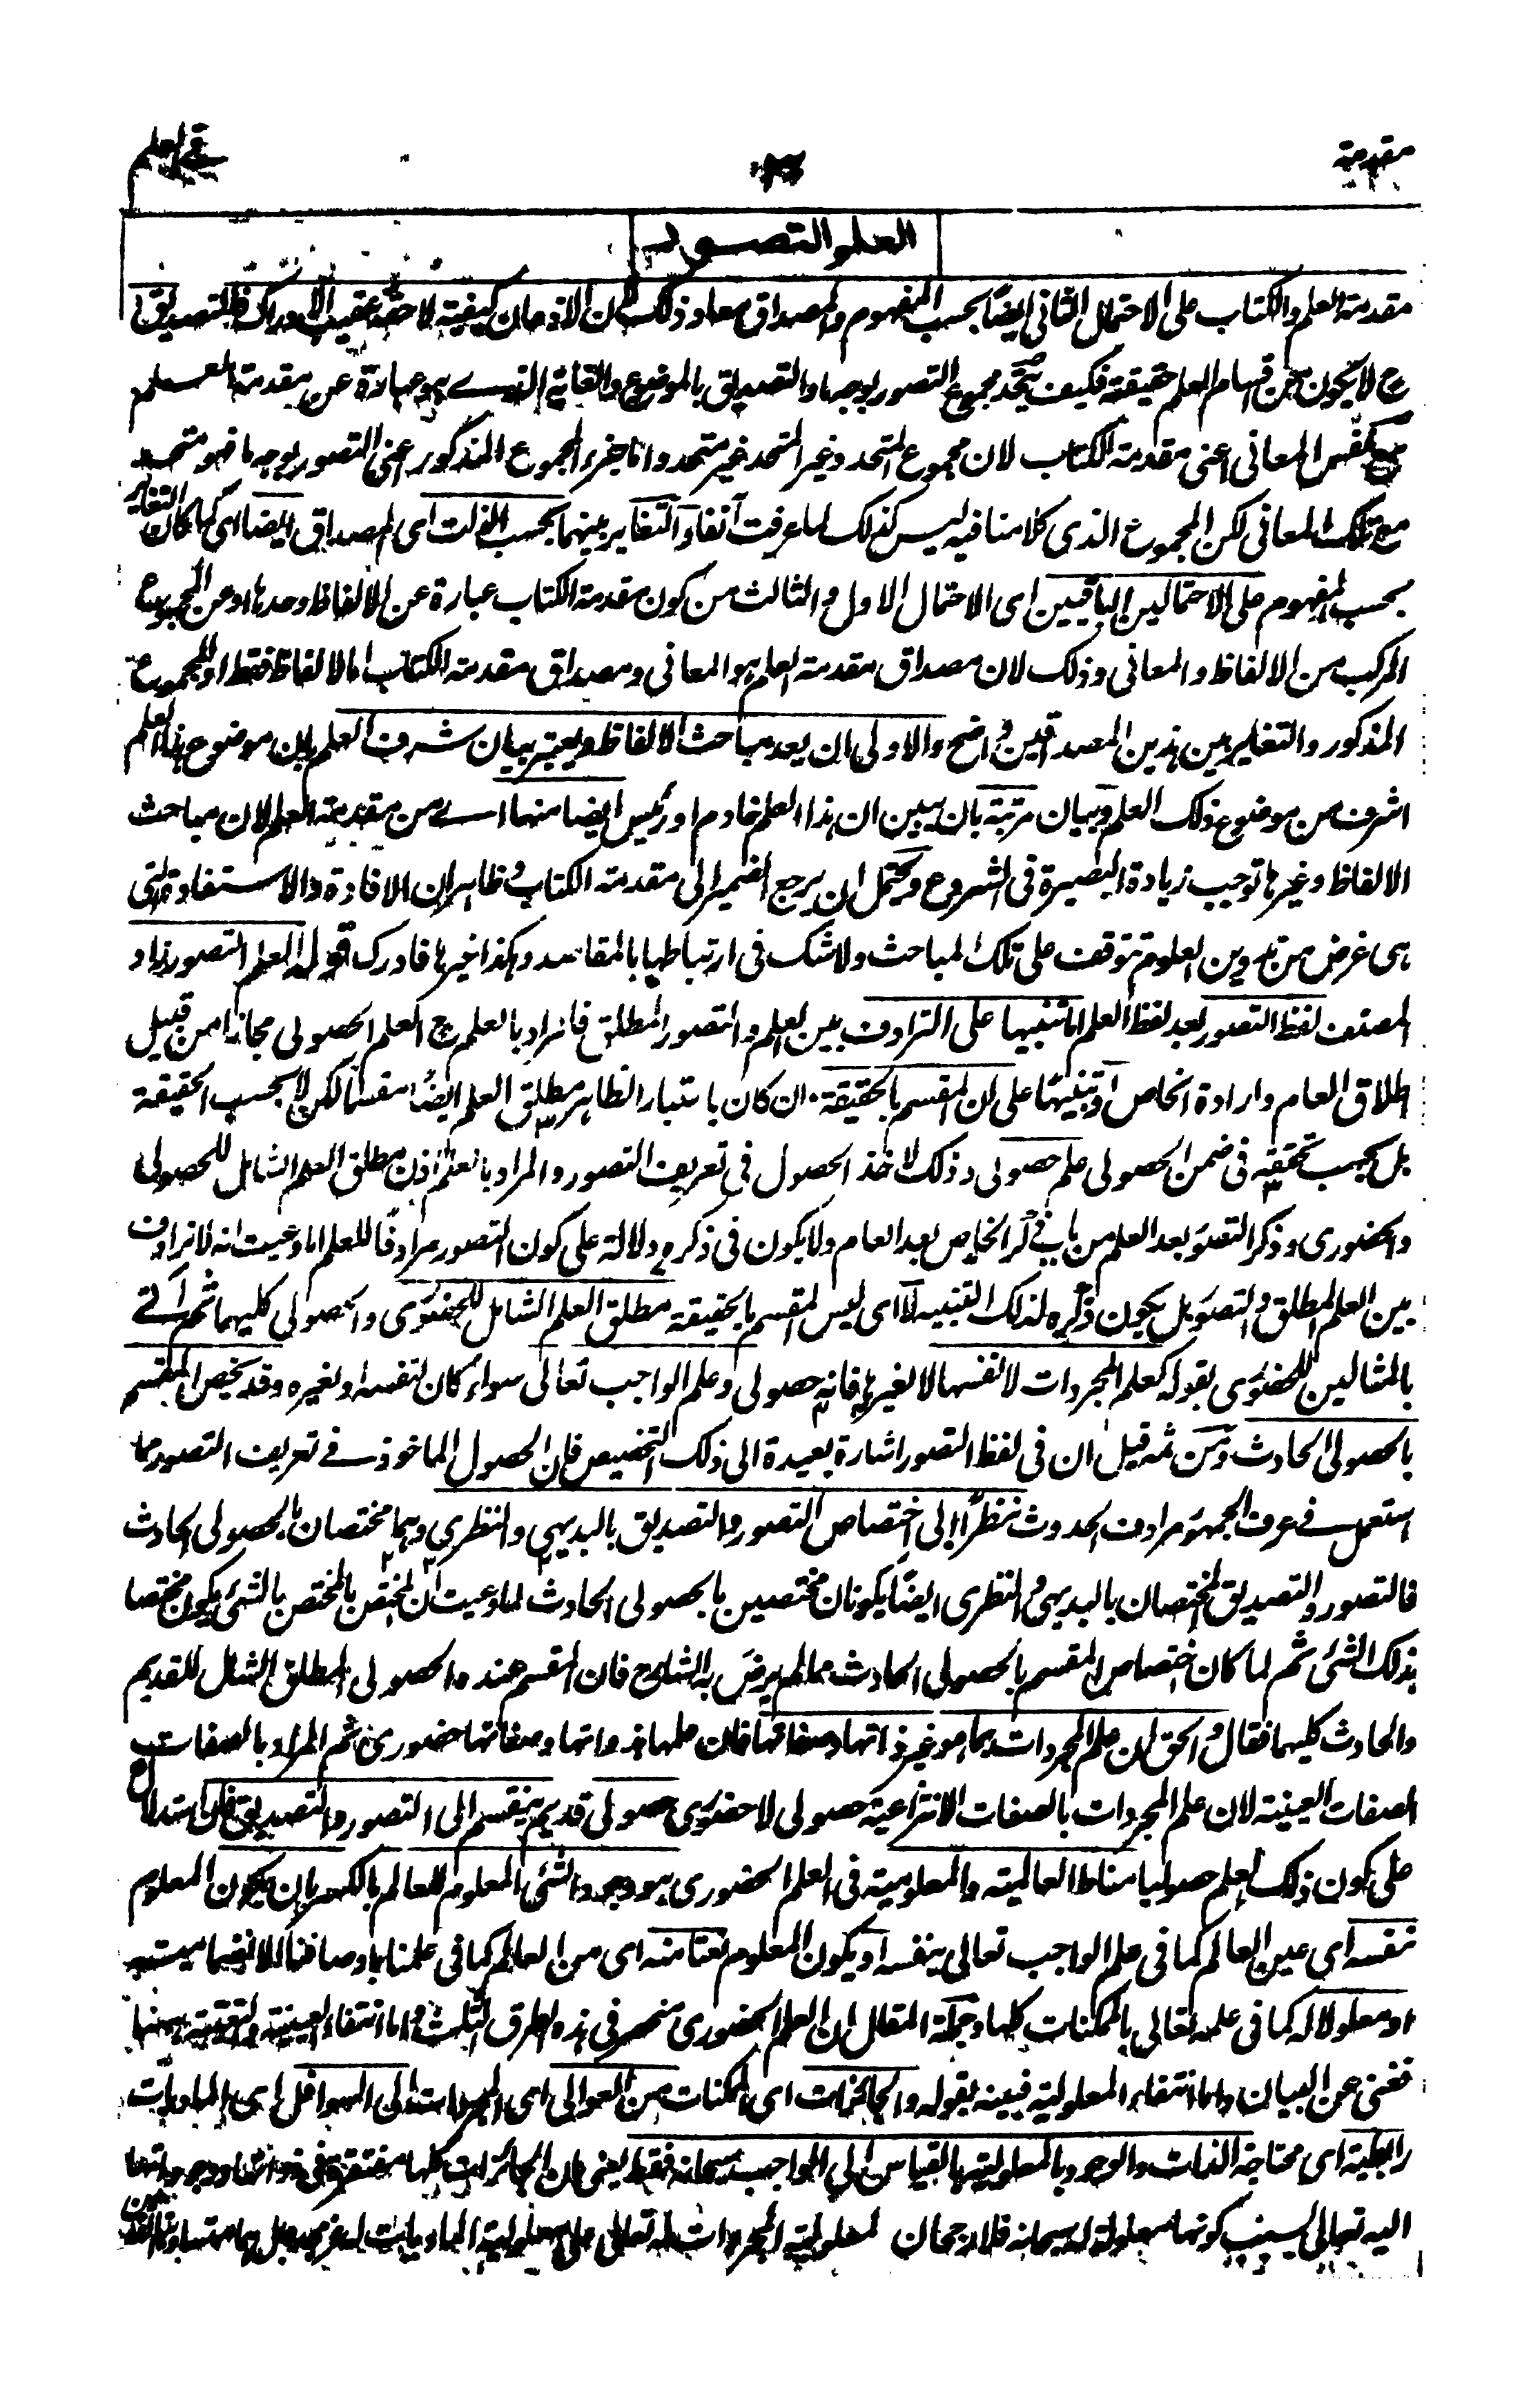 مقدمة
فى العلم
العلم التصور
مقدمة العلم والكتاب على الاحتمال الثانى ايضا بحسب المفهوم والمصداق معا وذلك لان الاذعان كيفية لاحقة عقيب الادراك فالتصديق
ح لا يكون من اقسام العلم حقيقة فكيف يتحد مجموع التصور بوجه ما والتصديق بالموضوع والغاية الذى هو عبارة عن مقدمة العلم
مع نفس المعانى اعنى مقدمة الكتاب لان مجموع المتحد وغير المتحد غير متحد واما جزء المجموع المذكور اعنى التصور بوجه ما فهو متحد
مع تلك المعانى لكن المجموع الذى كلامنا فيه ليس كذلك لما عرفت آنفا والتغاير بينهما بحسب الذات اى المصداق ايضا اى كما كان التغاير
بحسب المفهوم على الاحتمالين الباقيين اى الاحتمال الاول والثالث من كون مقدمة الكتاب عبارة عن الالفاظ وحدها او عن المجموع
المركب من الالفاظ والمعانى وذلك لان مصداق مقدمة العلم هو المعانى ومصداق مقدمة الكتاب اما الالفاظ فقط او المجموع
المذكور والتغاير بين هذين المصداقين واضح والاولى ان يعد مباحث الالفاظ وغيره بيان شرف العلم بان موضوع هذا العلم
اشرف من موضوع ذلك العلم وبيان مرتبة بان يبين ان هذا العلم خادم او رئيس ايضا منها اى من مقدمة العلم لان مباحث
الالفاظ وغيرها توجب زيادة البصيرة فى الشروع ويحتمل ان يرجع الضمير الى مقدمة الكتاب وظاهر ان الافادة والاستفادة التى
هى غرض من تدوين العلوم تتوقف على تلك المباحث ولا شك فى ارتباطها بالمقاصد وهكذا غيرها فادرك قوله العلم التصور زاد
المصنف لفظ التصور بعد لفظ العلم اما تنبيها على الترادف بين العلم والتصور المطلق فانراد بالعلم ح العلم الحصولى مجازا من قبيل
اطلاق العام وارادة الخاص او تنبيها على ان المقسم بالحقيقة وان كان باعتبار الظاهر مطلق العلم ايضا مقسما لكن لا بحسب الحقيقة
بل بحسب تحققه فى ضمن الحصولى علم حصولى وذلك لاخذ الحصول فى تعريف التصور والمراد بالعلم اذن مطلق العلم الشامل للحصولى
والحضورى وذكر التصور بعد العلم من باب ذكر الخاص بعد العام ولا يكون فى ذكره دلالة على كون التصور مرادفا للعلم لما وعيت انه لا ترادف
بين العلم المطلق والتصور بل يكون ذكره لذلك التنبيه لا اى ليس المقسم بالحقيقة مطلق العلم الشامل للحضورى والحصولى كليهما ثم اتى
بالمثالين للحضورى بقوله كعلم المجردات لانفسها لا لغيرها فانه حصولى وعلم الواجب تعالى سواء كان لنفسه او لغيره وقد يخص المقسم
بالحصولى الحادث ومن ثمه قيل ان فى لفظ التصور اشارة بعيدة الى ذلك التخصيص فان الحصول الماخوذ فى تعريف التصور مما
استعمل فى عرف الجمهور مرادف الحدوث نظرا الى اختصاص التصور والتصديق بالبديهى والنظرى وهما مختصان بالحصولى الحادث
فالتصور والتصديق المختصان بالبديهى والنظرى ايضا يكونان مختصين بالحصولى الحادث لما وعيت ان المختص بالمختص بالشئ يكون مختصا
بذلك الشئ ثم لما كان اختصاص المقسم بالحصولى الحادث مما لم يرض به الشارح فان المقسم عنده الحصولى المطلق الشامل للقديم
والحادث كليهما فقال والحق ان علم المجردات بما هو غير ذاتها وصفاتها فان علمها بذواتها وصفاتها حضورى ثم المراد بالصفات
الصفات العينية لان علم المجردات بالصفات الانتزاعية حصولى لا حضورى حصولى قديم ينقسم الى التصور والتصديق استدلال
على كون ذلك العلم حصوليا مناط العالمية والمعلومية فى العلم الحضورى هو وجود الشئ المعلوم للعالم بالكسر بان يكون المعلوم
نفسه اى عين العالم كما فى علم الواجب تعالى بنفسه او يكون المعلوم نعتا منه اى من العالم كما فى علمنا باوصافنا الانضمامية
او معلولا له كما فى علمه تعالى بالممكنات كلها وجملة المقال ان العلم الحضورى منحصر فى هذه الطرق الثلث واما انتفاء العينية والنعتية ههنا
فغنى عن البيان واما انتفاء المعلولية فبينه بقوله والجائزات اى الممكنات من العوالى اى المجردات الى السوافل اى الماديات
رابطية اى محتاجة الذات والوجود بالمعلولية بالقياس الى الواجب سبحانه فقط يعنى ان الجائزات كلها مفتقرة فى ذواتها ووجوداتها
اليه تعالى بسبب كونها معلولة له سبحانه فلا رجحان لمعلولية المجردات له تعالى على معلولية الماديات له عز وجل